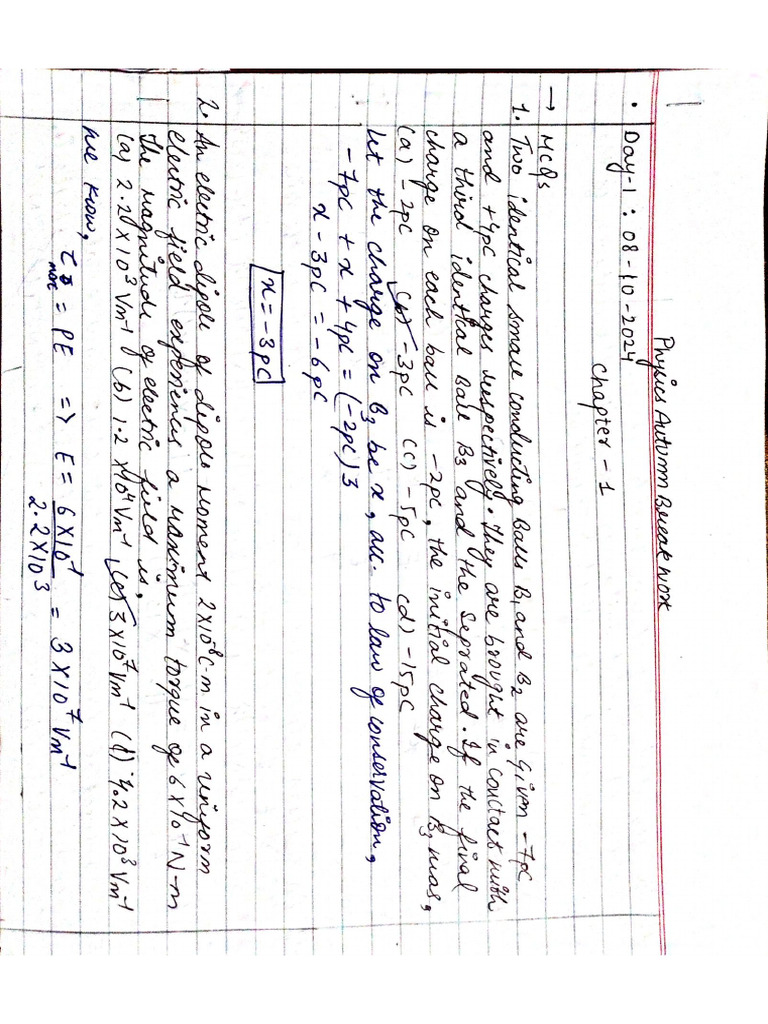 Physics Autumn Break Work
• Day-1 : 08-10-2024
Chapter - 1
→ MCQs
1. Two identical small conducting Balls B1 and B2 are given -7pc
and +4pc charges respectively. They are brought in contact with
a third identical Ball B3 and the seprated. If the final
charge on each ball is -2pc, the initial charge on B3 was,
(a) -2pc (b) -3pc (c) -5pc (d) -15pc
let the charge on B3 be x, acc. to law of conservation,
-7pc + x + 4pc = (-2pc)3
x - 3pc = -6pc
x = -3pc
2. An electric dipole of dipole moment 2×10-8 c-m in a uniform
electric field experiences a maximum torque of 6×10-1 N-m
The magnitude of electric field is,
(a) 2.2×103 Vm-1 (b) 1.2×104 Vm-1 (c) 3×107 Vm-1 (d) 4.2×103 Vm-1
we know,
τmax = PE => E = 6×10-1 / 2.2×103 = 3×107 Vm-1